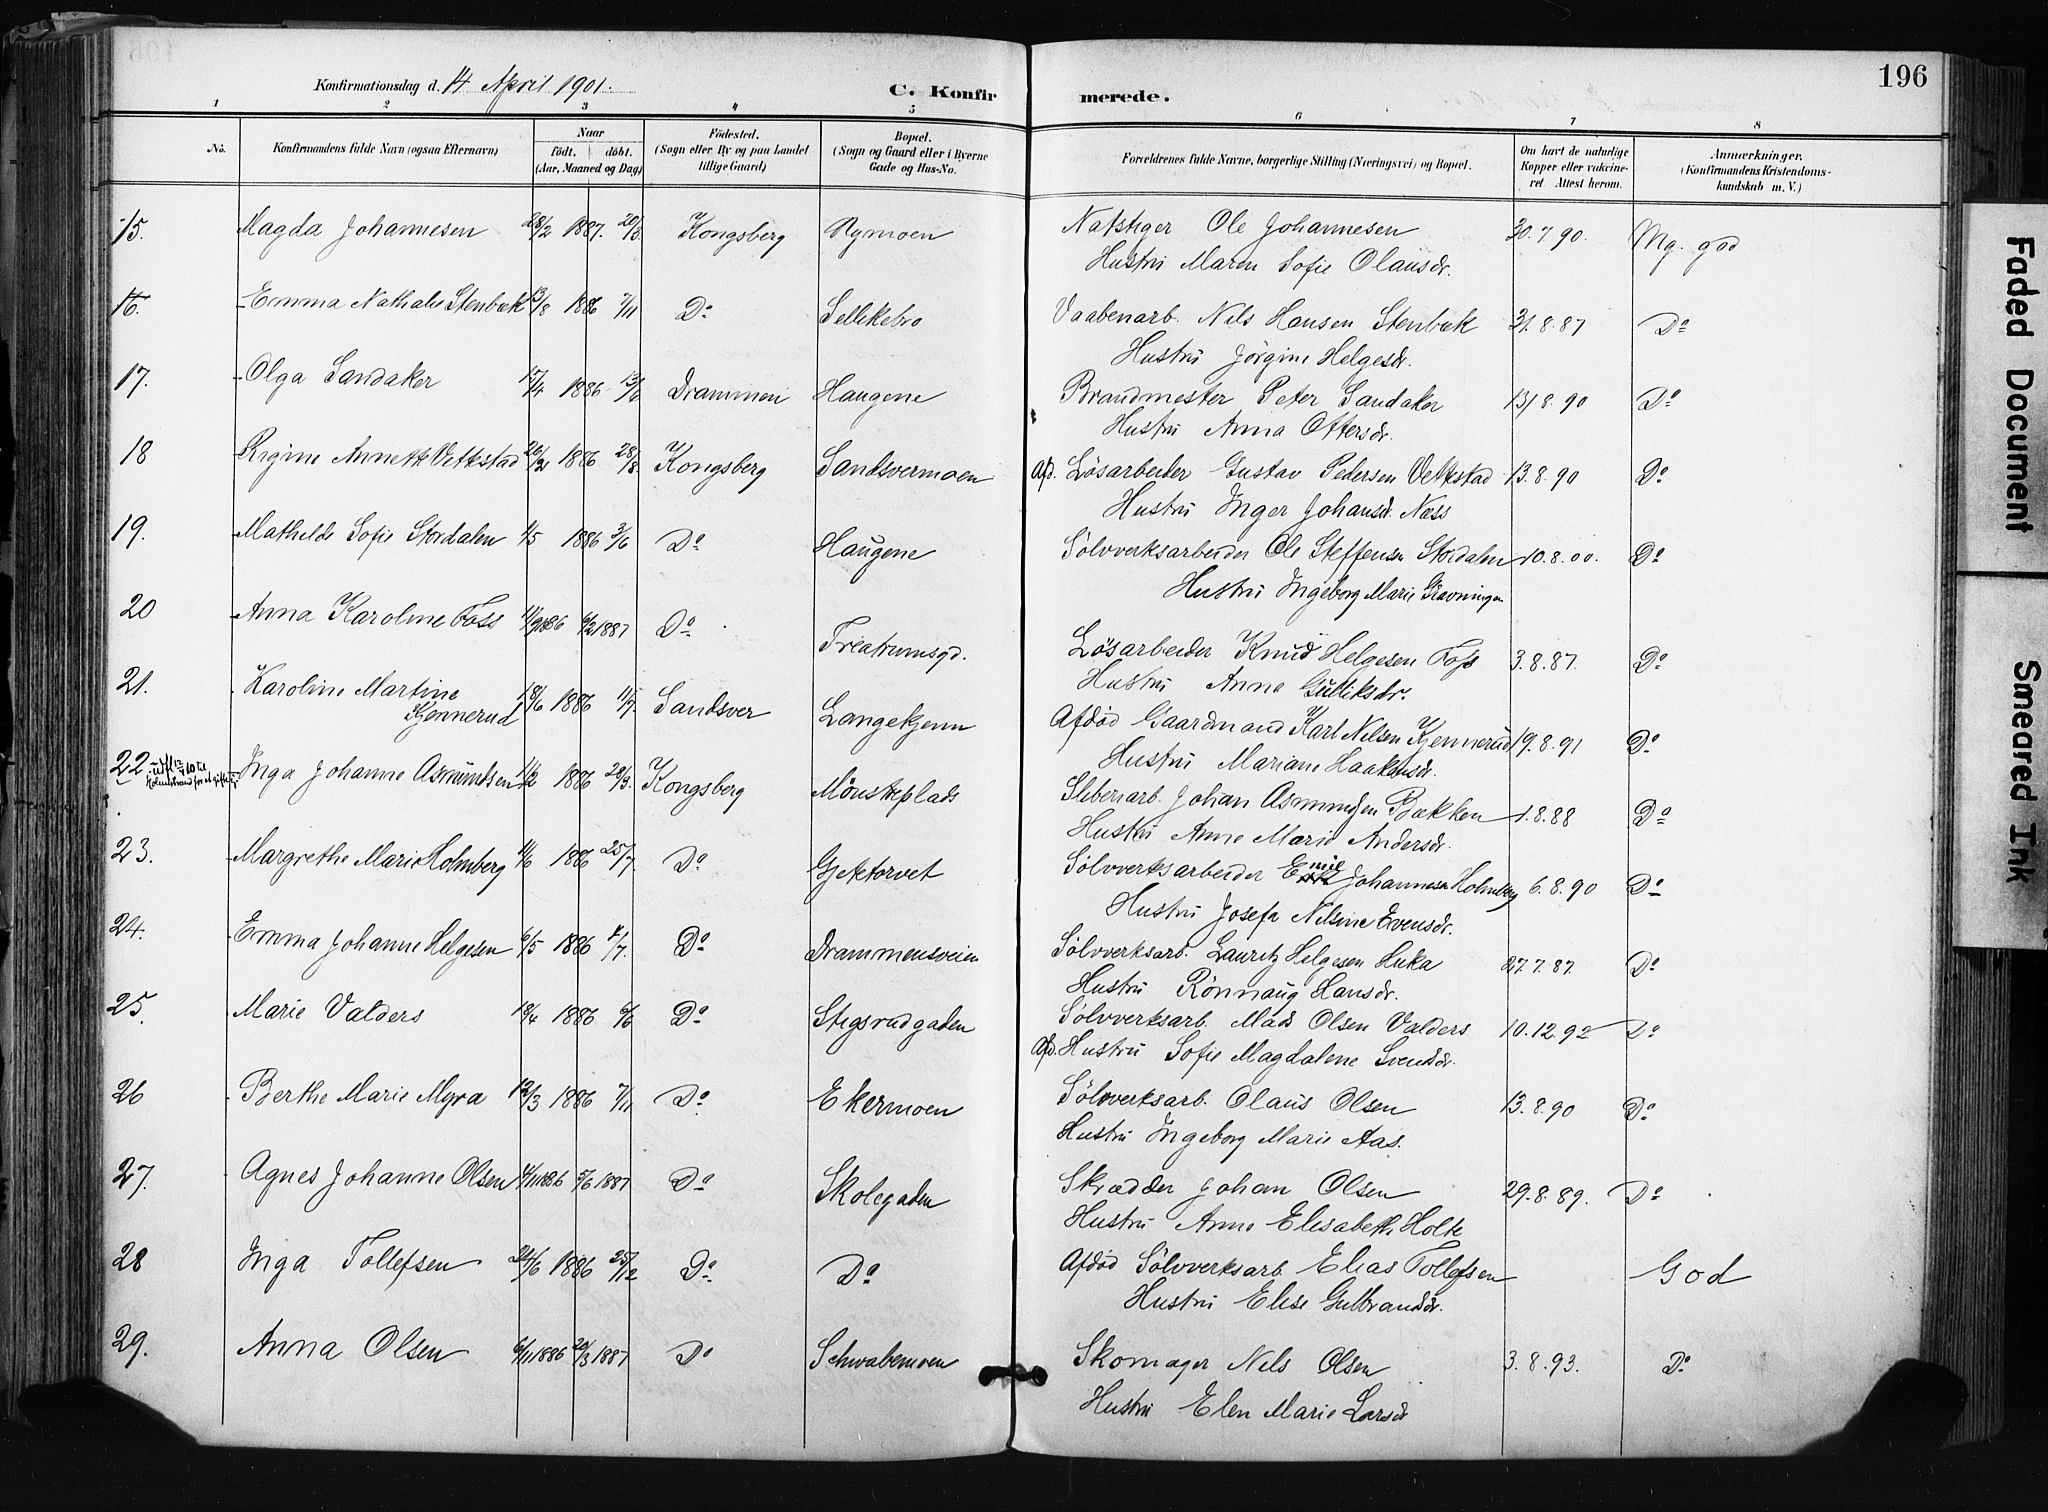 196
Konfirmationsdag d. 14 April 1901.
C. Konfirmerede.
1 2 3 4 5 6 7 8
No. Konfirmandens fulde Navn (ogsaa Efternavn) Naar født, døbt. (Aar, Maaned og Dag) Fødested. (Sogn eller By og paa Landet tillige Gaard) Bopæl. (Sogn og Gaard eller i Byerne Gade og Hus-No. Forældrenes fulde Navne, borgerlige Stilling (Næringsvei) og Bopæl. Om havt de naturlige Kopper eller vakcineret Attest herom. Anmærkninger. (Konfirmandens Kristendomskundskab m. V.)
15. Magda Johannesen 28/2 1887. 28/8. Kongsberg Nymoen Natstiger Ole Johannesen 30.7.90. Mg. god
Hustru Maren Sofie Olausdr.
16. Emma Nathalie Stenbæk 13/8 1886 7/11 Do Sellikebro Vaabenarb. Nils Hansen Stenbæk 31.8.87 Do
Hustru Jörgine Helgesdr.
17. Olga Sandaker 15/4 1886 13/6 Drammen Haugene Brandmester Peter Sandaker 13/8.90 Do
Hustru Anna Ottersdr.
18 Rigine Annette Vettestad 1886 28/8 Kongsberg Sandsvermoen Afd. Lösarbeider Gustav Pedersen Vettestad 13.8.90 Do
Hustru Inger Johansdr. Næss
19. Mathilde Sofie Stordalen 1/5 1886 3/6 Do Haugene Sölvverksarbeider Ole Steffensen Stordalen 10.8.00. Do
Hustru Ingeborg Marie Gravningen
20 Anna Karoline Foss 11/9 1886 6/2 1887 Do Treatrumsgd. Lösarbeider Knud Helgesen Foss 3.8.87. Do
Hustru Anne Gulliksdr.
21. Karoline Martine Kjennerud 18/6 1886 11/7. Sandsver Langekjenn Afdöd Gaardmand Karl Nilsen Kjennerud 19.8.91 Do
Hustru Mariane Haakensdr.
22 udfl. 12/4 10 til Holmestrand for at giftes Inga Johanne Asmundsen 11/2 1886 28/3. Kongsberg Mönsteplads Sliberiarb. Johan Asmundsen Bakken 1.8.88 Do
Hustru Anne Marie Andersdr.
23. Margrethe Marie Holmberg 11/6 1886 25/7. Do Gjetetorvet Sölvverksarbeider Emil Johannesen Holmberg 6.8.90 Do
Hustru Josefa Nilsine Evensdr.
24. Emma Johanne Helgesen 6/5 1886 4/7. Do Drammensveien Sölvverksarb. Lauritz Helgesen Huka 27.7.87. Do
Hustru Rönnaug Hansdr.
25. Marie Valders 18/4 1886 6/6 Do Stigsrudgaden Sölvverksarb. Mads Olsen Valders 10.12.92 Do
Afd. Hustru Sofie Magdalene Svendsdr.
26 Berthe Marie Myra 12/3 1886 7/11 Do Ekermoen Sölvverksarb. Olaus Olsen 13.8.90 Do
Hustru Ingeborg Marie Aas.
27. Agnes Johanne Olsen 4/11 1886 5/6 1887 Do Skolegaden Skrædder Johan Olsen 29.8.89. Do
Hustru Anne Elisabeth Holte
28 Inga Tollefsen 24/6 1886 25/12 Do Do Afdöd Sölvverksarb. Elias Tollefsen God
Hustru Elise Gulbrandsdr.
29. Anna Olsen 6/11 1886 20/3 1887 Do Schwabemoen Skomager Nils Olsen 3.8.93. Do
Hustru Elen Marie Larsdr
Faded Document
Smeared Ink